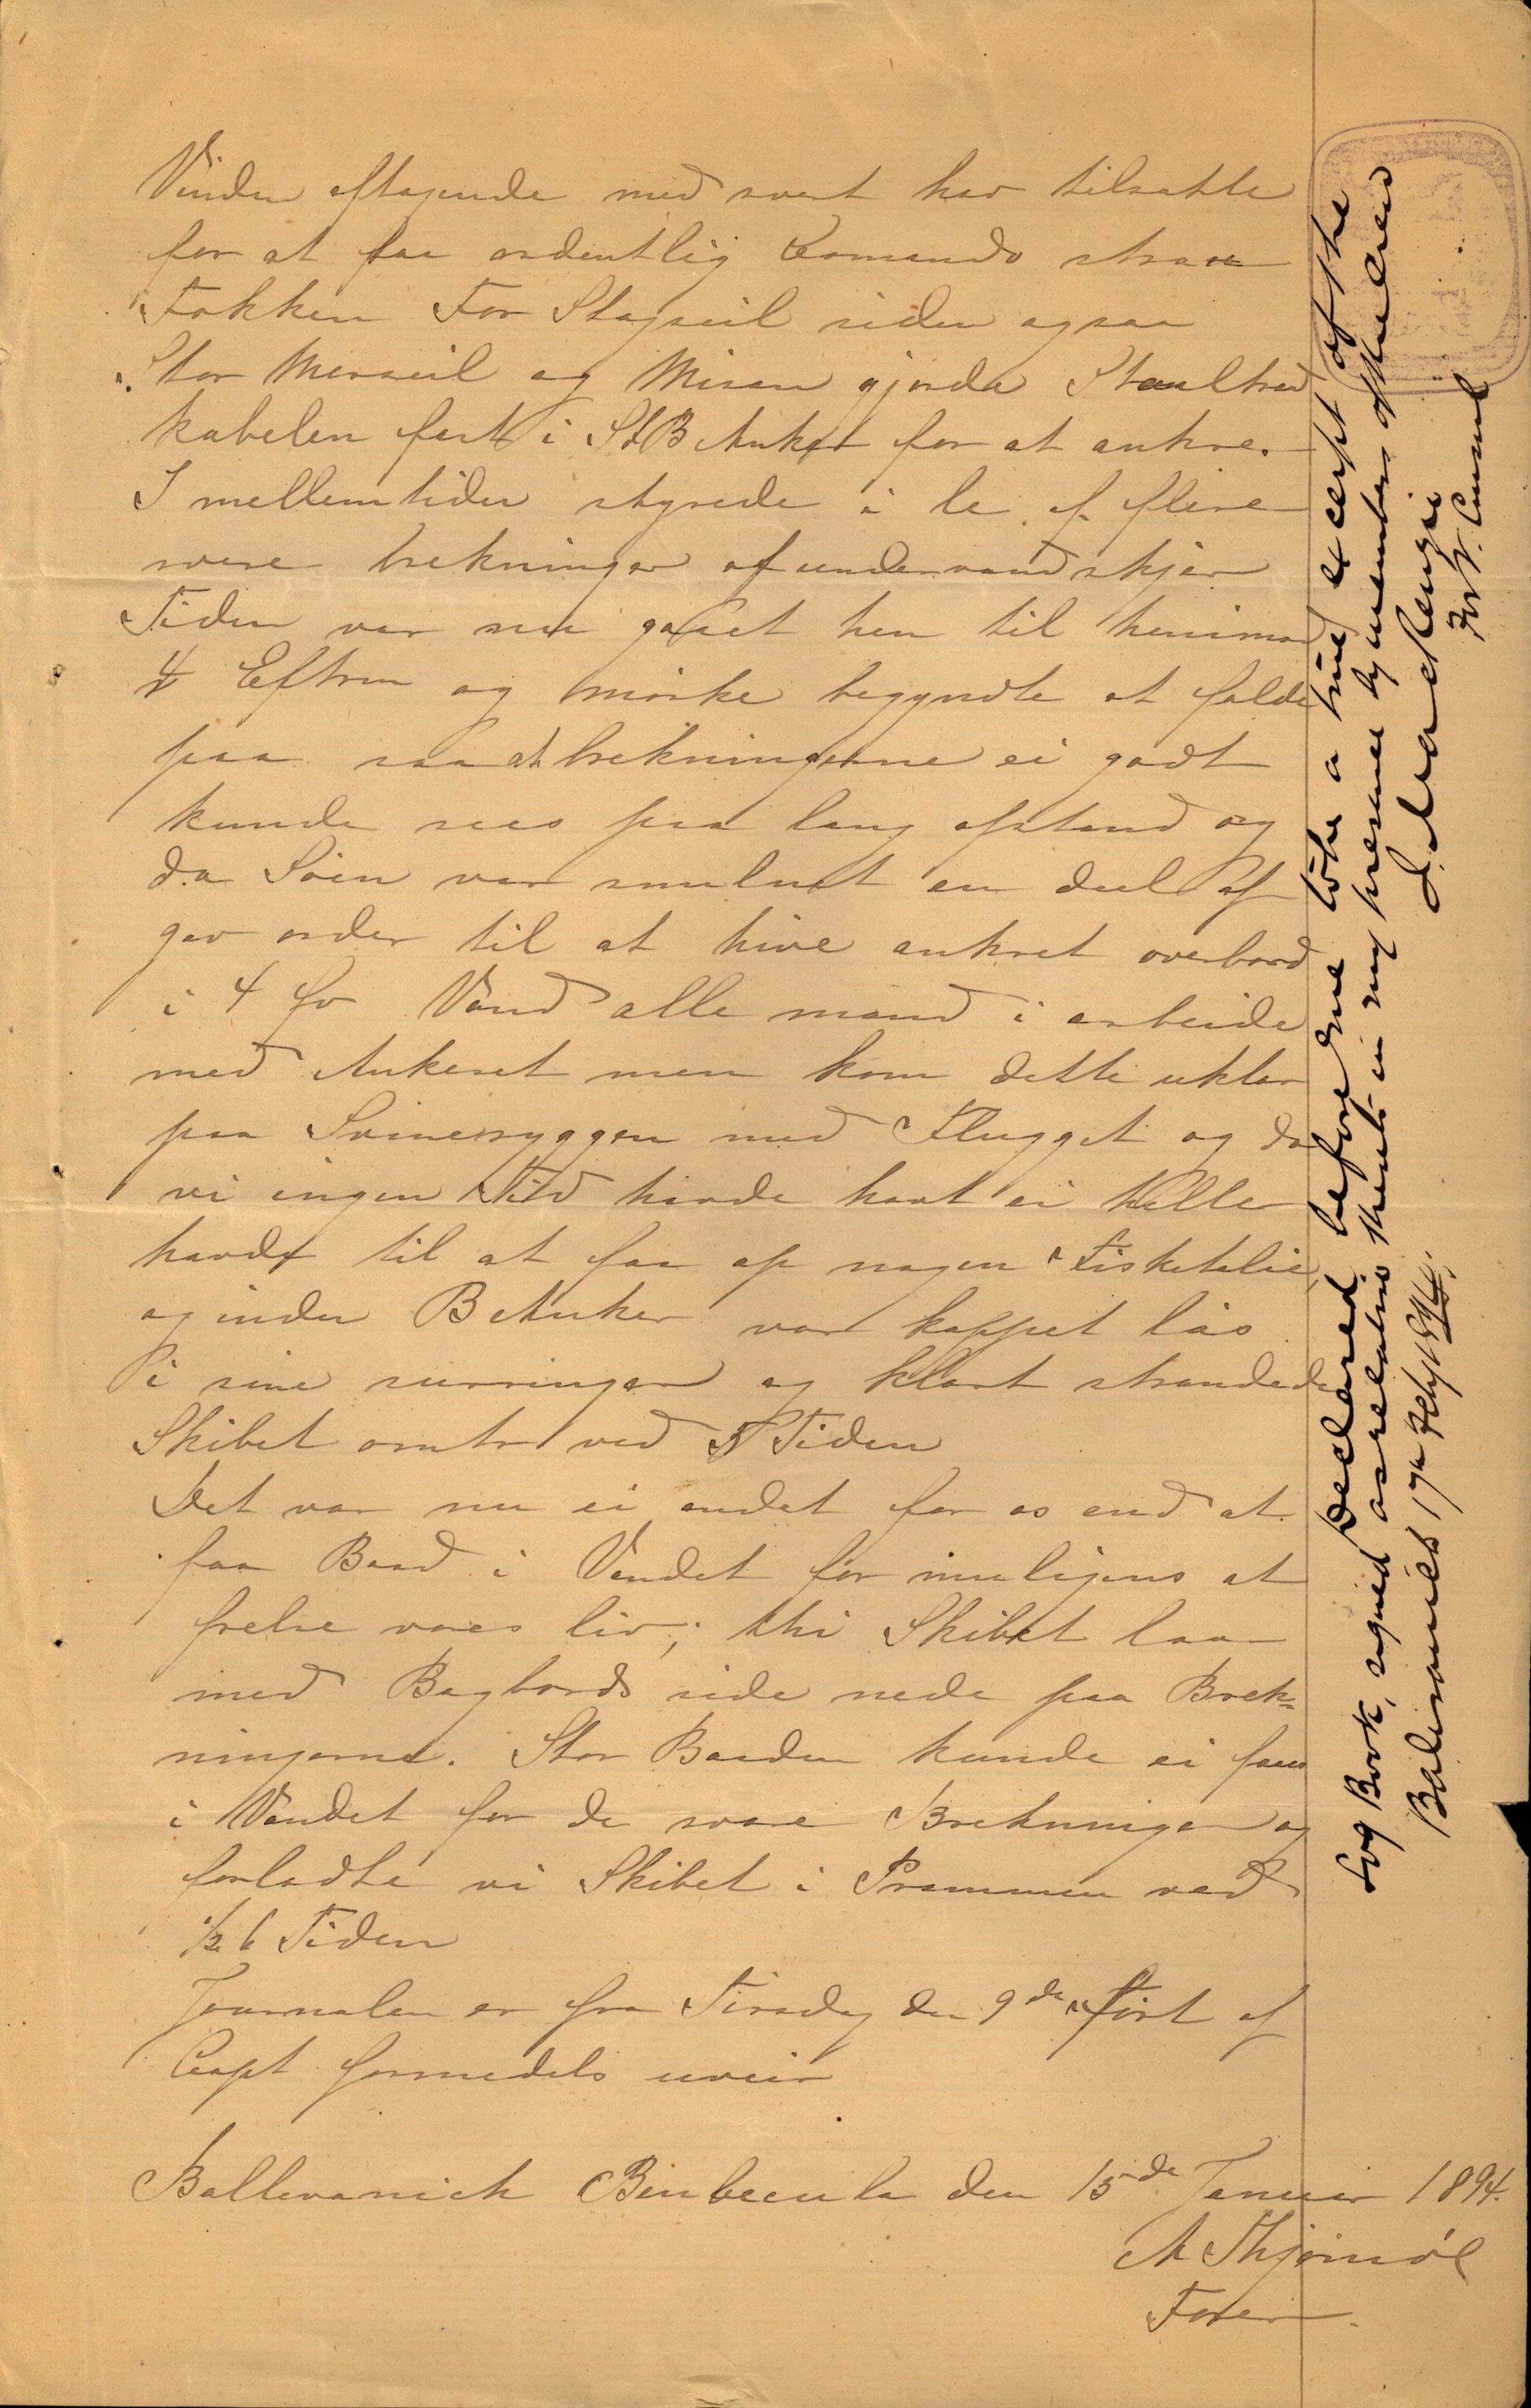 Vinden aftagende med svert hav tilsatte
for at faa ordentlig Comando strax
Fokken For Stagseil siden ogsaa
Stor Merseil og Misan gjorde Staaltraad
kabelen fast i StB Anker for at ankre.
I mellemtiden styrede i le af flere
svere brekninger af undervandskjær
Tiden var nu gaaet hen til henimod
4 Eftrm og mörke begyndte at falde
paa saa at brekningerne ei godt
kunde sees paa lang afstand og
da Söen var smulnet en deel af
gav order til at hive ankret overbord
i 4 fv Vand alle mand i arbeide
med Ankeret men kom dette uklar
paa Svineryggen med Flugget og da
vi ingen Tid havde havt ei heller
havdt til at faa op nogen Fisketalie,
og inden B Anker var kappet lös
i sine surringer og klart strandede
Skibet omtr ved 5 Tiden
Det var nu ei andet for os end at
faa Baad i Vandet for muligens at
frelse vores liv; thi Skibet laa
med Bagbords side nede paa Brek-
ningerne. Stor Baaden kunde ei faaes
i Vandet for de svare Brekninger og
forladte vi Skibet i Prammen ved
1/2 6 Tiden
Journalen er fra Tirsdag den 9de ført af
Capt formedels uveir
Ballivanich Benbecula den 15de Januar 1894.
Fører
Declared before me to be a true excerpt of the
Log Book, signed as relative hereto in my presence by members of the crew
Balivanich 17th
J. MacKenzie
for N. Consul